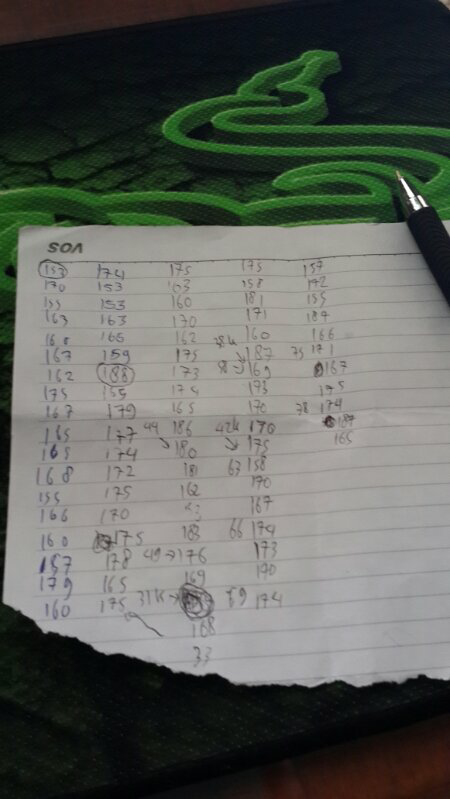 SOA
153 174 175 175 157
170 153 163 158 172
155 153 160 181 155
163 163 170 171 187
160 166 162 160 166
167 159 175 187 75 171
162 188 173 169 167
175 155 174 173 175
167 179 165 170 78 174
185 177 49 186 42k 170 187
165 174 180 175 165
168 172 181 63 158
155 175 162 170
166 170 167
160 175 183 66 174
157 178 49 176 173
179 165 169 170
160 175 31k 69 174
168
33